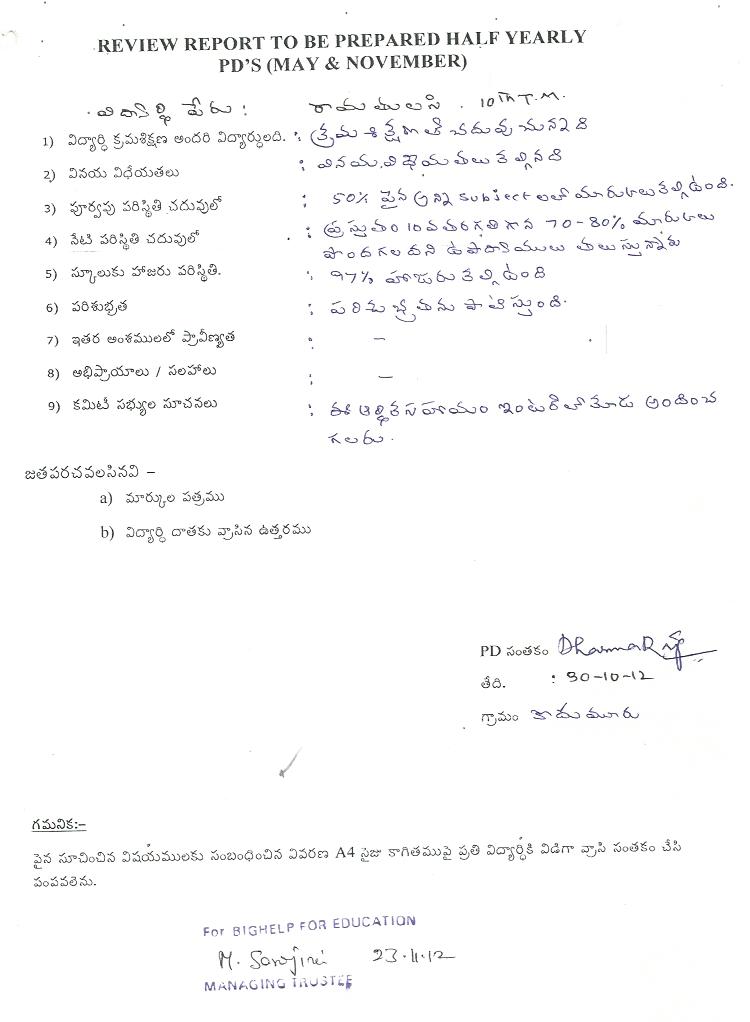 REVIEW REPORT TO BE PREPARED HALF YEARLY
PD'S (MAY & NOVEMBER)
విద్యార్థి పేరు : రామ తులసి . 10th T.M.
1) విద్యార్థి క్రమశిక్షణ అందరి విద్యార్థులది. : క్రమ శిక్షణతో చదువుచున్నది
2) వినయ విధేయతలు : వినయ,విధేయతలు కల్గినది
3) పూర్వపు పరిస్థితి చదువులో : 50% పైన అన్ని subject లలో మారుకులు కల్గి ఉంది.
4) నేటి పరిస్థితి చదువులో : ప్రస్తుతం 10వ తరగతి గాన 70-80% మారుకులు
పొందగలదని ఉపాధ్యాయులు తలుస్తున్నారు
5) స్కూలుకు హాజరు పరిస్థితి. : 97% హాజరు కల్గి ఉంది
6) పరిశుభ్రత : పరిశుభ్రతను పాటిస్తుంది.
7) ఇతర అంశములలో ప్రావీణ్యత : –
8) అభిప్రాయాలు / సలహాలు : –
9) కమిటీ సభ్యుల సూచనలు : ఈ ఆర్థిక సహాయం ఇంటర్ లో కూడ అందించ
గలరు.
జతపరచవలసినవి –
a) మార్కుల పత్రము
b) విద్యార్థి దాతకు వ్రాసిన ఉత్తరము
PD సంతకం
తేది. : 30-10-12
గ్రామం కాదుమూరు
గమనిక:–
పైన సూచించిన విషయములకు సంబంధించిన వివరణ A4 సైజు కాగితముపై ప్రతి విద్యార్థికి విడిగా వ్రాసి సంతకం చేసి
పంపవలెను.
For BIGHELP FOR EDUCATION
M. Sarojini 23.11.12
MANAGING TRUSTEE